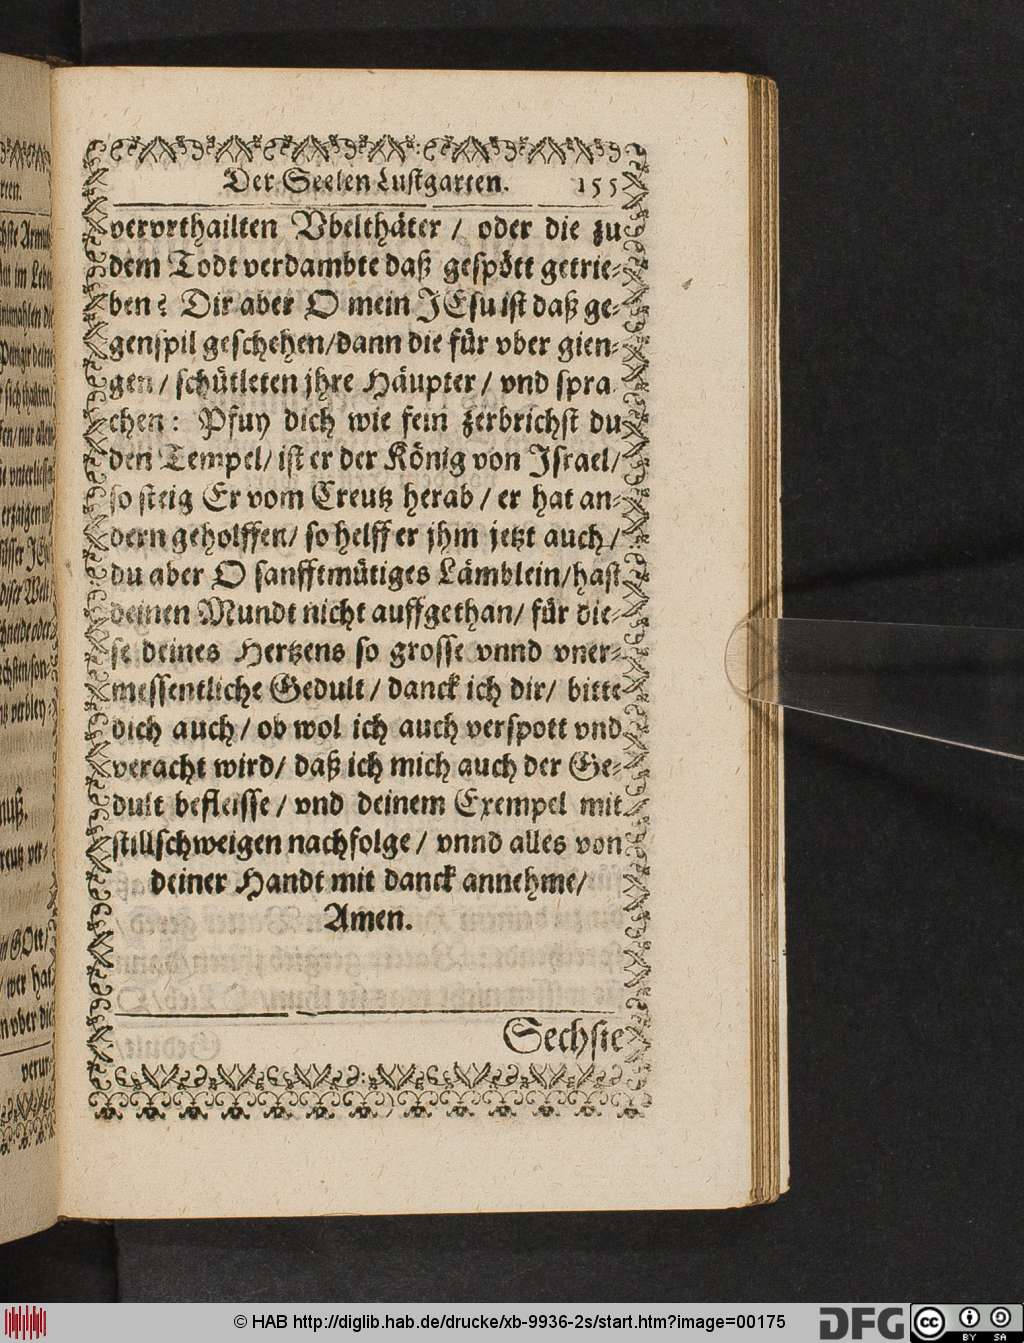 Der Seelen Lustgarten. 155
verurthailten Vbelthäter / oder die zu
dem Todt verdambte daß gespött getrie⸗
ben? Dir aber O mein JEsu ist daß ge⸗
genspil geschehen/dann die für vber gien⸗
gen / schütleten jhre Häupter / vnd spra
chen: Pfuy dich wie fein zerbrichst du
den Tempel/ ist er der König von Israel/
so steig Er vom Creutz herab / er hat an⸗
dern geholffen/ so helff er jhm jetzt auch /
du aber O sanfftmütiges Lämblein/hast
deinen Mundt nicht auffgethan/ für die⸗
se deines Hertzens so grosse vnnd vner⸗
messentliche Gedult / danck ich dir/ bitte
dich auch / ob wol ich auch verspott vnd
veracht wird/ daß ich mich auch der Ge⸗
dult befleisse / vnd deinem Exempel mit
stillschweigen nachfolge / vnnd alles von
deiner Handt mit danck annehme/
Amen.
Sechste
© HAB http://diglib.hab.de/drucke/xb-9936-2s/start.htm?image=00175
DFG
cc BY SA